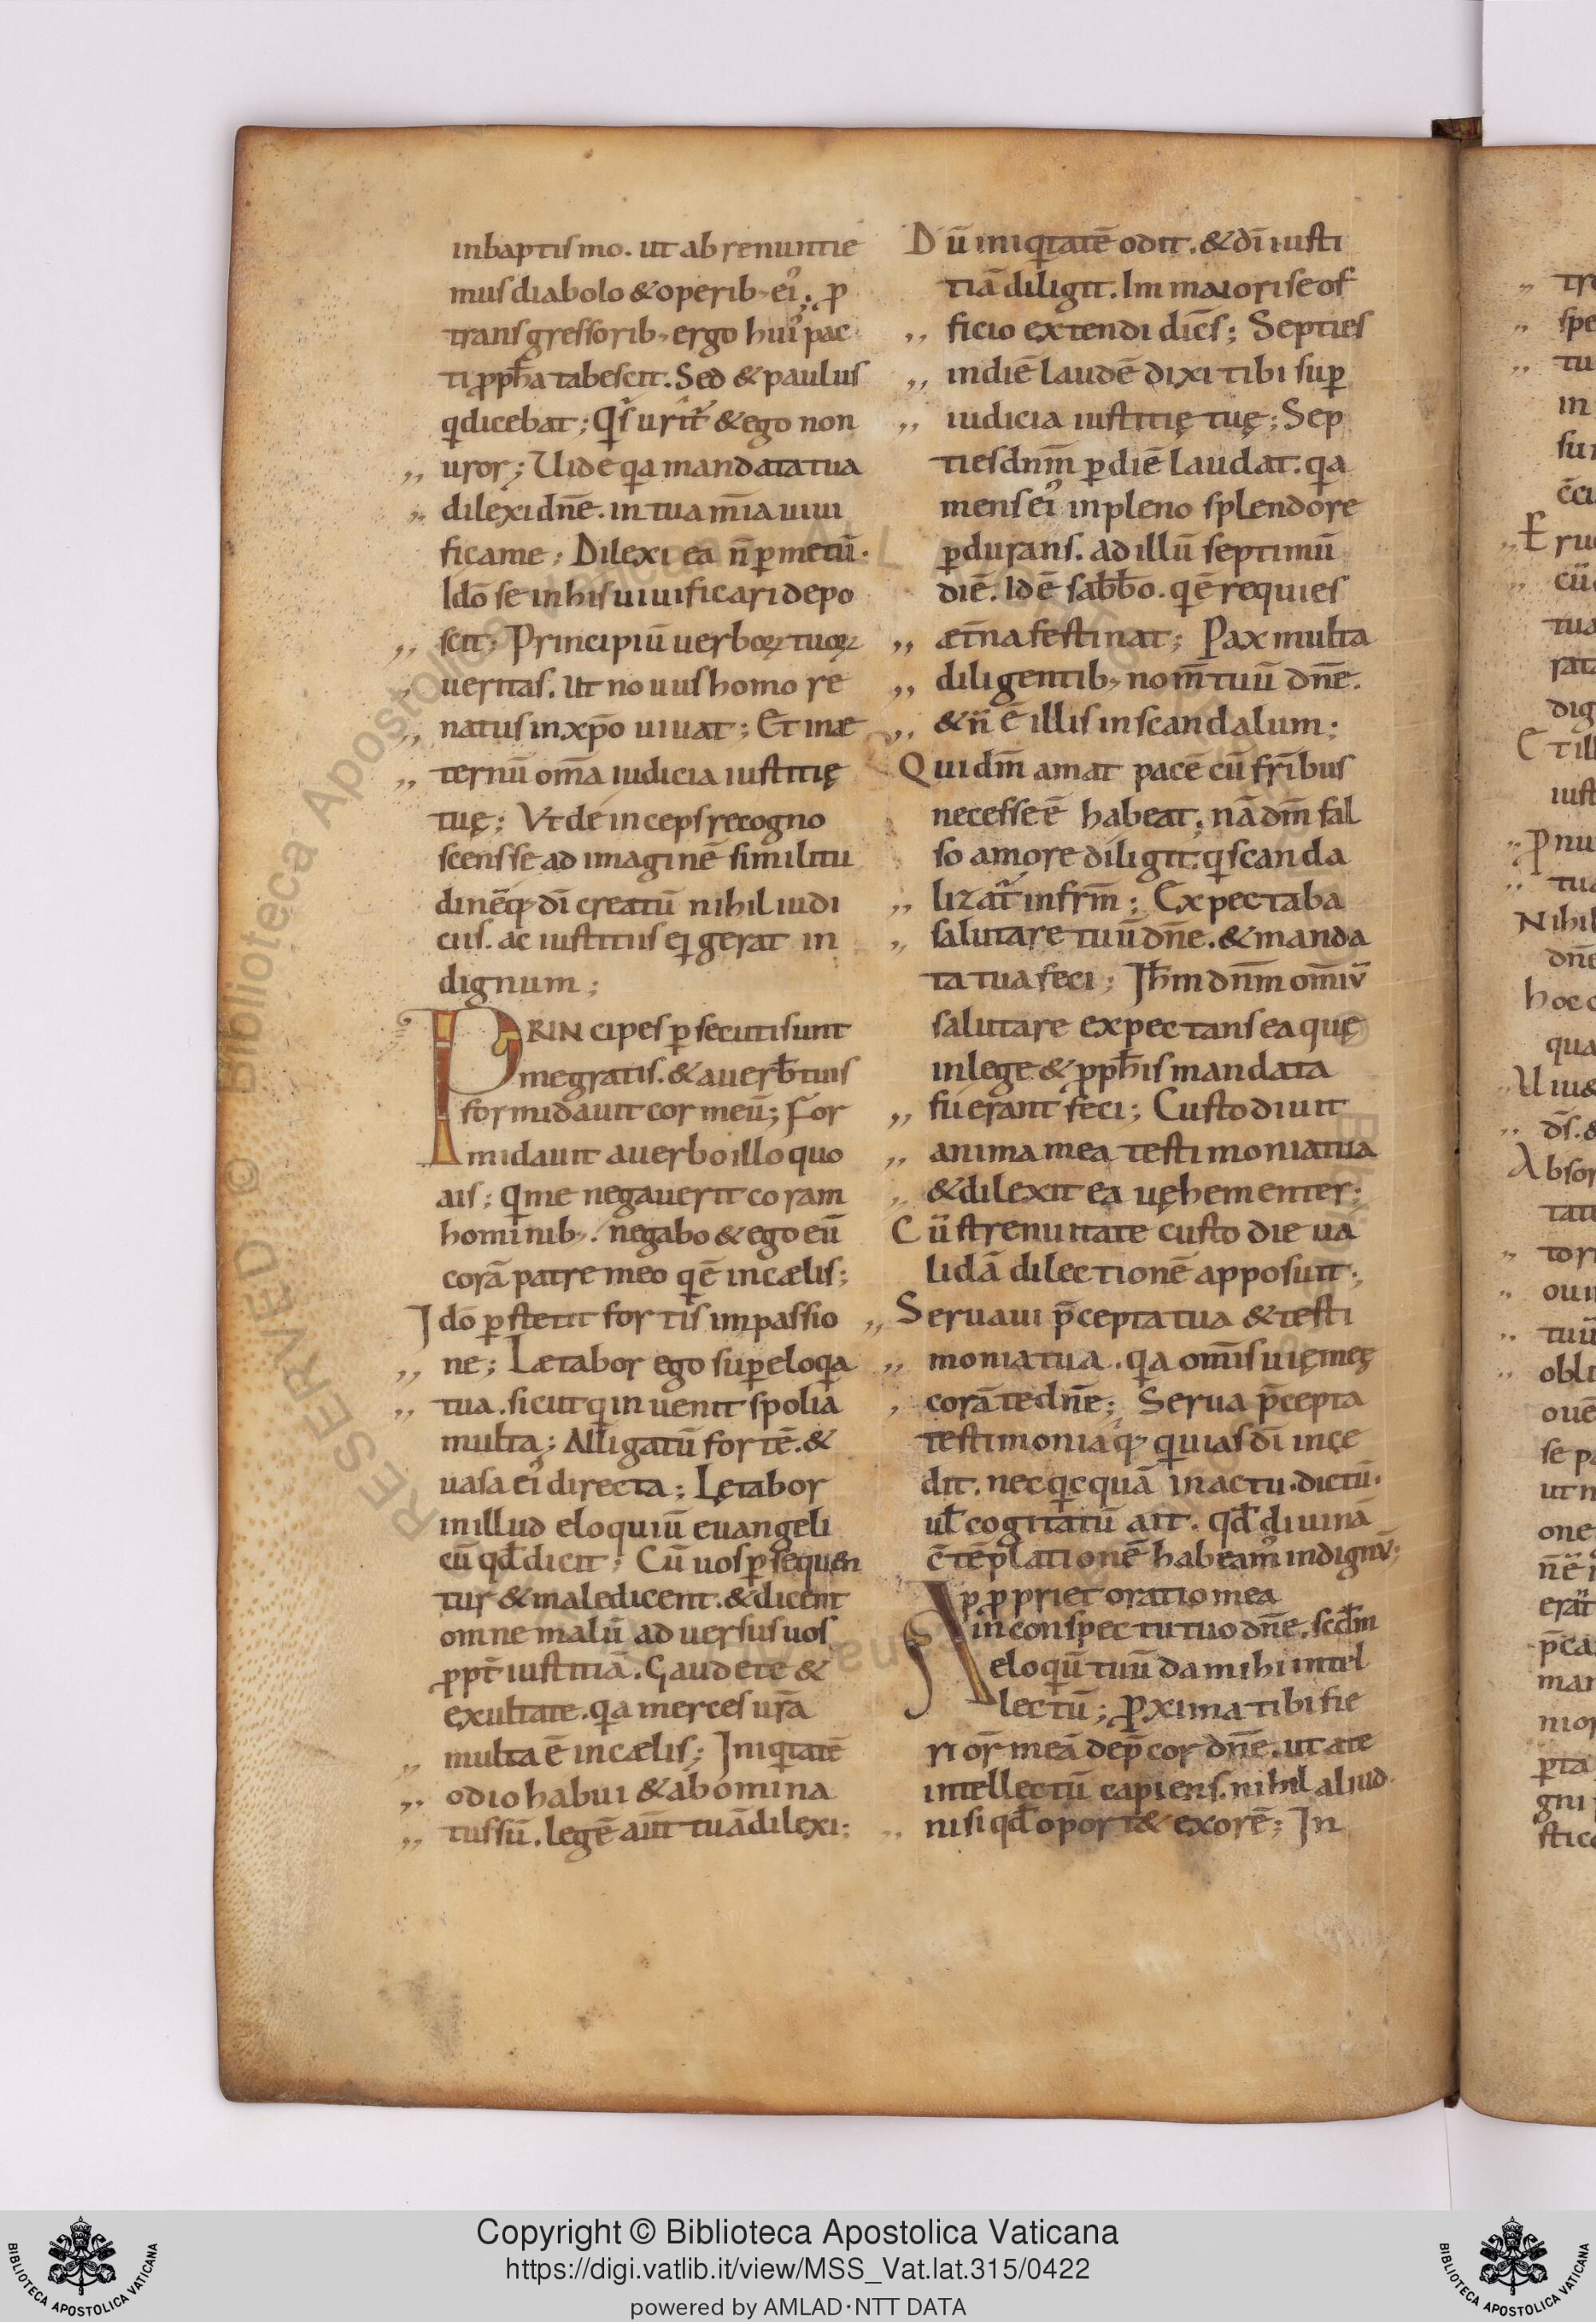 inbaptismo. ut abrenuntie
mus diabolo & operib; ei᾽; ꝓ
transgressorib; ergo hui᾽ pac
ti ꝓph̄a tabescit. Sed & paulus
qͥ dicebat; Qͥs urit᷑ & ego non
,, uror; Uide qͥa mandata tua
,, dilexi dn̄e. in tua mīa uiui
fica me; Dilexi ea n̄ ꝑ metū.
Idō se in his uiuificari depo
,, scit; Principiū uerboꝝ tuoꝝ
,, ueritas. Ut nouus homo re
,, natus in xp̄o uiuat; Et in æ
,, ternū om̄a iudicia iustitię
tuę; Vt deinceps recogno
scens se ad imaginē similitu
dinēq; dī creatū nihil iudi
ciis. ac iustitiis ei᾽ gerat in
dignum;
PRINcipes ꝑsecuti sunt
me gratis. & a uerb̄ tuis
formidauit cor meū; For
midauit a uerbo illo quo
ais; Qͥ me negauerit coram
hominib;. negabo & ego eū
corā patre meo qͥ ē in cælis;
Idō ꝑstetit fortis im passio
,, ne; Lætabor ego suꝑ eloqͥa
,, tua. sicut qͥ inuenit spolia
multa; Alligatū fortē. &
uasa ei᾽ directa; Lętabor
in illud eloquiū euangeli
cū qd̄ dicit; Cū uos ꝑsequen
tur & maledicent. & dicent
omne malū aduersus uos
ꝓpt̄ iustitiā. Gaudete &
exultate. qͥa merces ur̄a
,, multa ē in cælis; Iniqͥtatē
,, odio habui & abomina
,, tus sū. legē aūt tuā dilexi;
Dū iniqͥtatē odit. & dī iusti
tiā diligit. Im maiori se of
,, ficio extendi dic̄s; Septies
,, in diē laudē dixi tibi suꝑ
,, iudicia iustitię tuę; Sep
ties dnm̄ ꝑ diē laudat. qͥa
mens ei᾽ in pleno splendore
ꝑdurans. ad illū septimū
diē. Id ē sabb̄o. qͥ ē requies
,, æt̄na festinat; Pax multa
,, diligentib; nom̄ tuū dn̄e.
,, & n̄ ē illis in scandalum;
Qui dm̄ amat pacē cū fr̄ibus
necesse ē habeat; nā dm̄ fal
so amore diligit. qͥ scanda
,, lizat᷑ in frm̄; Expectaba
,, salutare tuū dn̄e. & manda
ta tua feci; Ih̄m dnm̄ om̄iū
salutare expectans ea quę
in lege & ꝓph̄is mandata
,, fuerant feci; Custodiuit
,, anima mea testimonia tua
,, & dilexit ea uęhementer;
Cū strenuitate custodie ua
lidā dilectionē apposuit;
,, Seruaui p̄cepta tua & testi
,, monia tua. qͥa om̄is uię meę
,, corā te dn̄e; Serua p̄cepta
testimoniaq; qͥ uias dī ince
dit. nec qͥcquā in actu. dictū.
ul̄ cogitatū ait. qd̄ diuinā
c̄tēplationē habeam᾽ indignū;
Apꝓpriet oratio mea
in conspectu tuo dn̄e. scd̄m
eloqͥū tuū da mihi intel
lectū; Ꝓxima tibi fie
ri or̄ meā dep̄cor dn̄e. ut a te
intellectū capiens. nihil aliud
,, nisi qd̄ oport& exorē; In
Copyright © Biblioteca Apostolica Vaticana
https://digi.vatlib.it/view/MSS_Vat.lat.315/0422
powered by AMLAD·NTT DATA
BIBLIOTECA APOSTOLICA VATICANA
BIBLIOTECA APOSTOLICA VATICANA